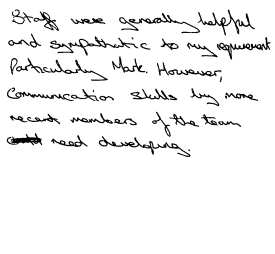 Staff were generally helpful
and sympathetic to my requirement
Particularly Mark. However,
Communication skills by more
recent members of the team
need developing.